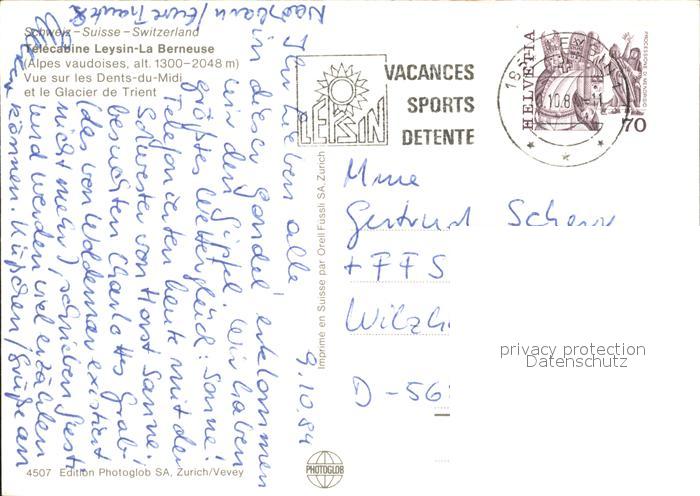 Schweiz - Suisse - Switzerland
Télécabine Leysin-La Berneuse
(Alpes vaudoises, alt. 1300-2048 m)
Vue sur les Dents-du-Midi
et le Glacier de Trient
LEYSIN
VACANCES
SPORTS
DETENTE
HELVETIA
PROCESSIONE DI MENDRISIO
70
9.10.84
Ihr Lieben alle!
in dieser Gondel erklommen
wir den Gipfel. Wir haben
größtes Wetterglück: Sonne!
Telefonierten heute mit der
Schwester von Horst Sanne.
besuchten Charlottes Grab
(das von Woldemar existiert
nicht mehr), schrieben
und werden viel erzählen
können.
Mme
Gertrud
+ FFS
D-56
privacy protection
Datenschutz
Imprimé en Suisse par Orell Füssli SA, Zurich
PHOTOGLOB
4507 Edition Photoglob SA, Zurich/Vevey